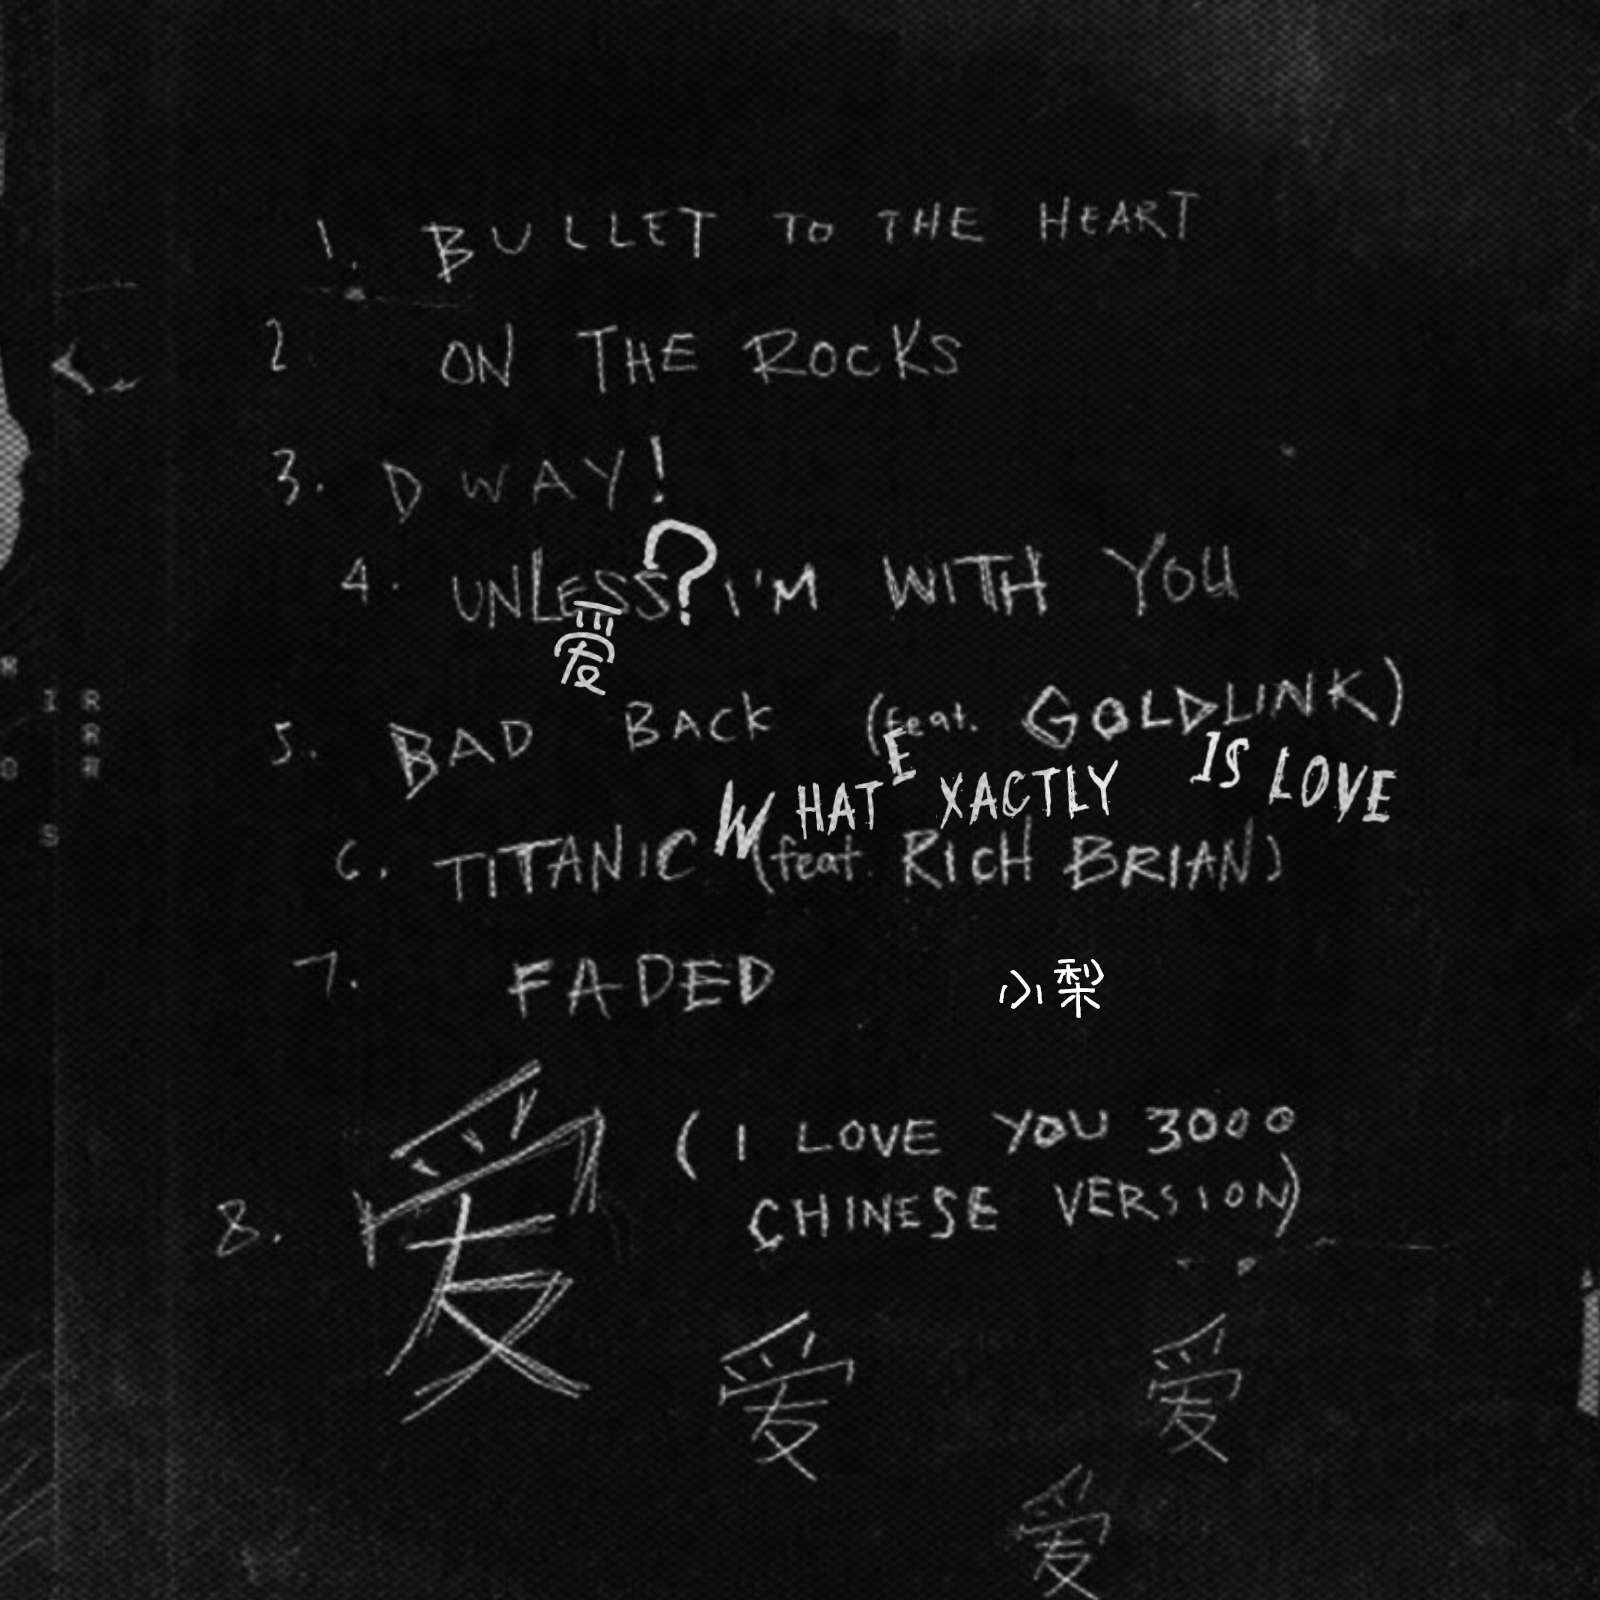 1. BULLET TO THE HEART
2 ON THE ROCKS
3. DWAY!
4. UNLESS? I'M WITH YOU
爱
5. BAD BACK (feat. GOLDLINK)
WHAT EXACTLY IS LOVE
6. TITANIC (feat. RICH BRIAN)
7. FADED
小梨
8. 爱 (I LOVE YOU 3000
CHINESE VERSION)
爱
爱
爱
R
I R
R
O R
S